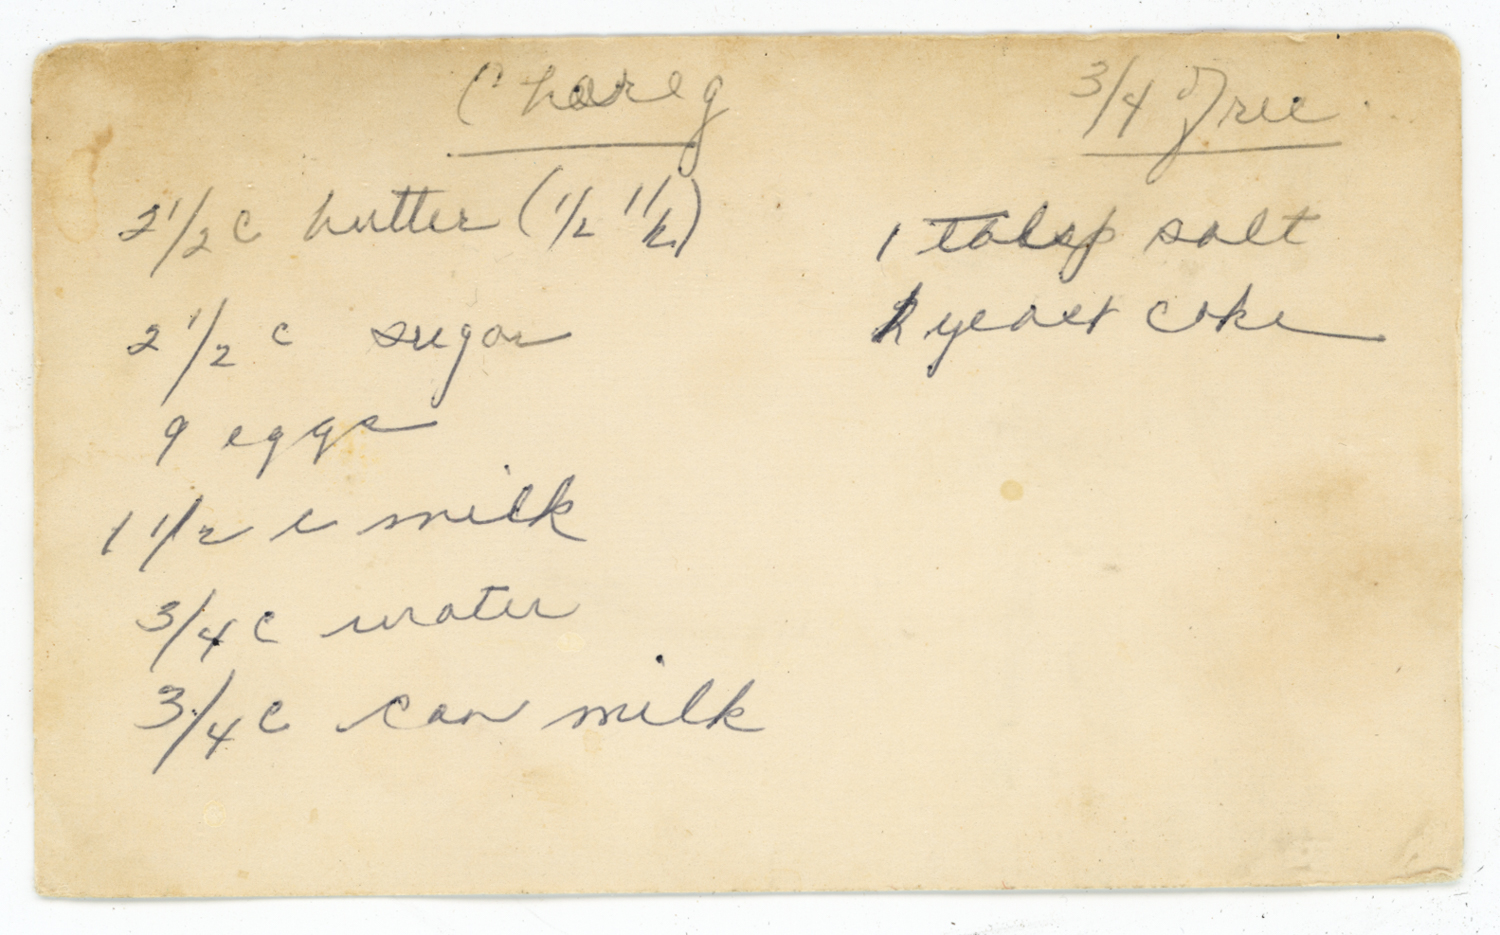 Choreg
3/4 Free
2 1/2 c butter (1/2 1 1/2)
2 1/2 c sugar
9 eggs
1 1/2 c milk
3/4 c water
3/4 c can milk
1 tabsp salt
2 yeast cake